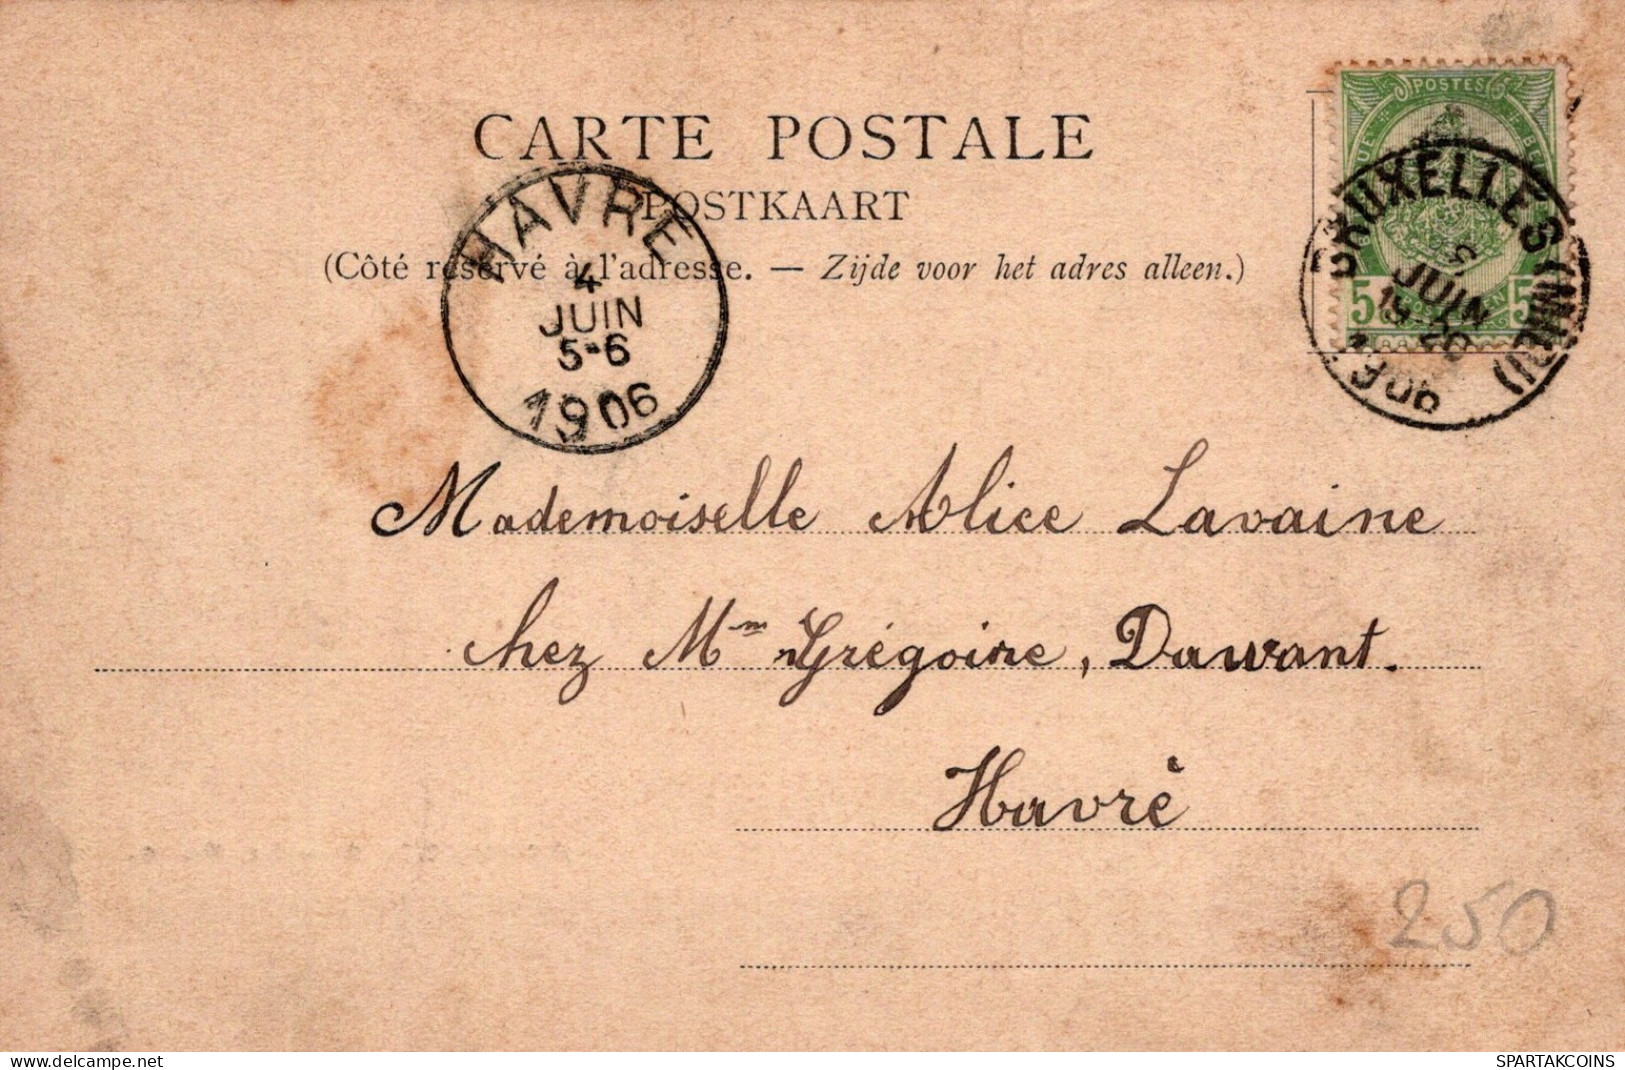 CARTE POSTALE
POSTKAART
(Côté réservé à l'adresse. — Zijde voor het adres alleen.)
POSTES
5 5
BRUXELLES (MIDI)
JUIN
1906
HAVRE
4
JUIN
5-6
1906
Mademoiselle Alice Lavaine
chez Mm Grégoire, Dawant.
Havré
250
delcampe.net
SPARTAKCOINS